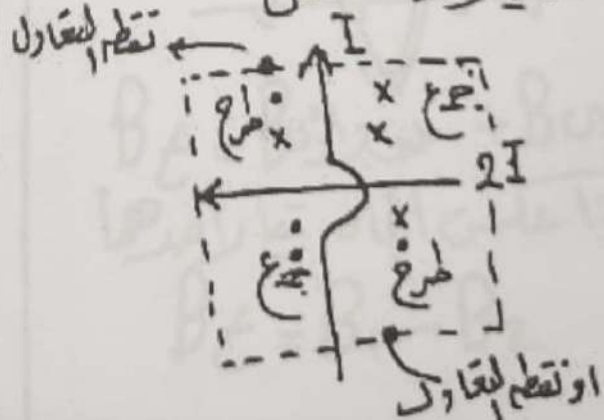 نقطة التعادل
I
طرح
جمع
x
x
x
2I
x
جمع
طرح
او نقطة التعادل